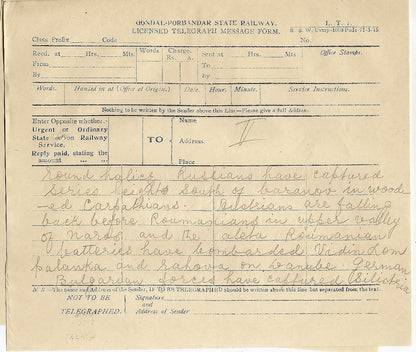 GONDAL-PORBANDAR STATE RAILWAY.
LICENSED TELEGRAPH MESSAGE FORM.
L. T. 1.
Class Prefix Code
Recd. at Hrs. Mts.
Words
Charge.
Rs. a.
Sent at Hrs. Mts.
Office Stamps.
From
To
By
By
Words. Handed in at (Office of Origin.) Date. Hour. Minute. Service Instruction.
Nothing to be written by the Sender above this Line—Please give a full Address.
Enter Opposite whether:
Urgent or Ordinary
State or on Railway
Service.
Reply paid, stating the
amount
TO
Name
II
Address.
Place
Russians have captured
series heights south of baranov in wood
-ed Carpathians. are falling
back before Roumanians in upper valley
of Maros and the Roumanian
batteries have bombarded Vidin Lom
palanka and Rahova on Danube German
Bulgarian forces have captured Silistria
N B—The name and Address of the Sender, IF TO BE TELEGRAPHED should be written above this line but separated from the text.
NOT TO BE
TELEGRAPHED.
Signature
and
Address of Sender